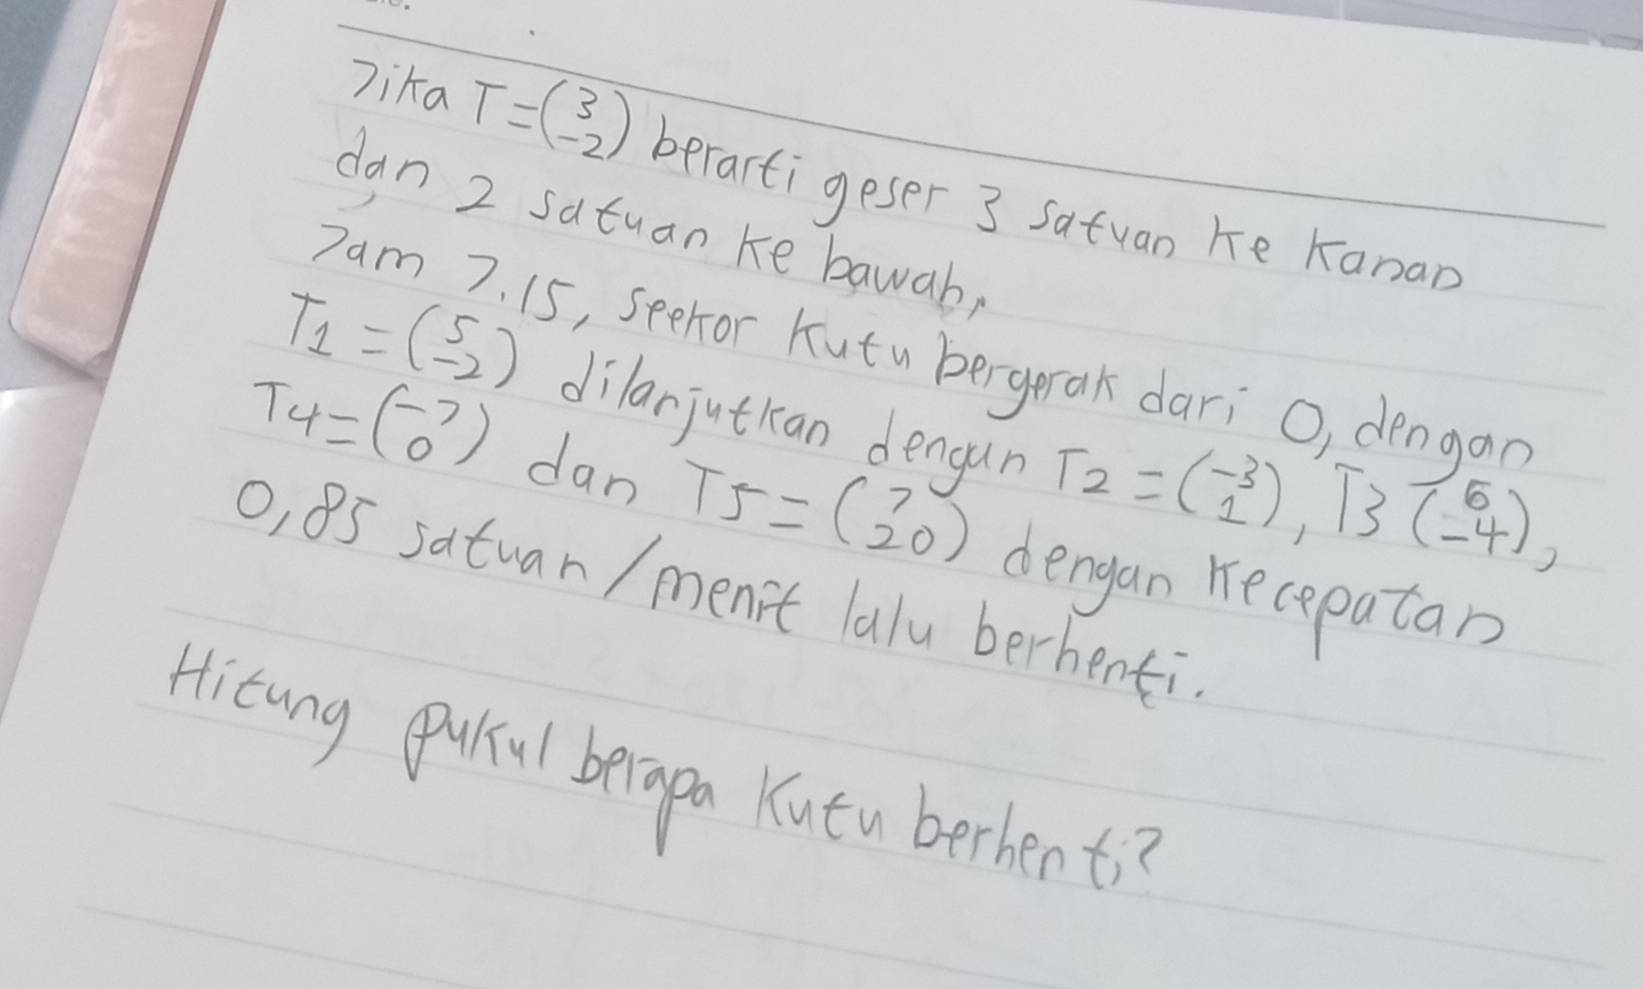 Jika T = (3 -2) berarti geser 3 satuan ke kanan
dan 2 satuan ke bawah,
Jam 7.15, seekor kutu bergerak dari O, dengan
T1 = (5 -2) dilanjutkan dengan T2 = (-3 1), T3 (6 -4),
T4 = (-7 0) dan T5 = (7 20) dengan kecepatan
0,85 satuan/menit lalu berhenti.
Hitung pukul berapa kutu berhenti?